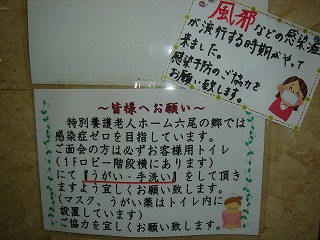 風邪などの感染症
が流行する時期がやって
来ました。
感染予防のご協力を
お願い致します。
～皆様へお願い～
特別養護老人ホーム六尾の郷では
感染症ゼロを目指しています。
ご面会の方は必ずお客様用トイレ
（1Fロビー階段横にあります）
にて『うがい・手洗い』をして頂き
ますよう宜しくお願い致します。
（マスク、うがい薬はトイレ内に
設置しています）
ご協力を宜しくお願い致します。